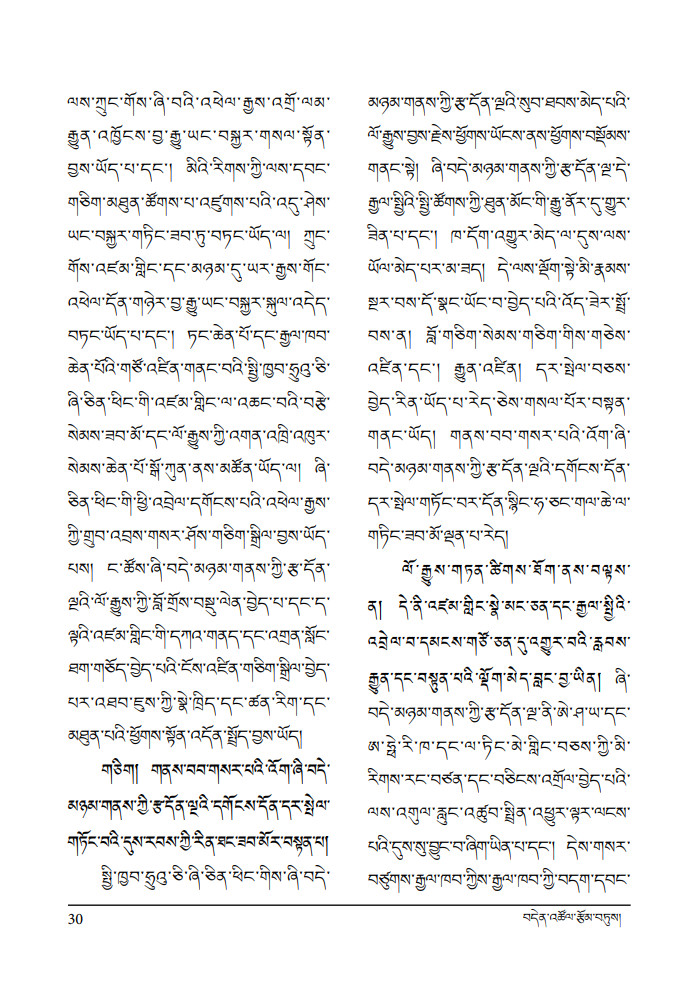 ལས་ཀྲུང་གོས་ཞི་བའི་འཕེལ་རྒྱས་འགྲོ་ལམ་
རྒྱུན་འཁྱོངས་བྱ་རྒྱུ་ཡང་བསྐྱར་གསལ་སྟོན་
བྱས་ཡོད་པ་དང་། མིའི་རིགས་ཀྱི་ལས་དབང་
གཅིག་མཐུན་ཚོགས་པ་འཛུགས་པའི་འདུ་ཤེས་
ཡང་བསྐྱར་གཏིང་ཟབ་ཏུ་བཏང་ཡོད་ལ། ཀྲུང་
གོས་འཛམ་གླིང་དང་མཉམ་དུ་ཡར་རྒྱས་གོང་
འཕེལ་དོན་གཉེར་བྱ་རྒྱུ་ཡང་བསྐྱར་སྐུལ་འདེད་
བཏང་ཡོད་པ་དང་། ཏང་ཆེན་པོ་དང་རྒྱལ་ཁབ་
ཆེན་པོའི་གཙོ་འཛིན་གནང་བའི་སྤྱི་ཁྱབ་ཧྲུའུ་ཅི་
ཞི་ཅིན་ཕིང་གི་འཛམ་གླིང་ལ་འཆང་བའི་བརྩེ་
སེམས་ཟབ་མོ་དང་ལོ་རྒྱུས་ཀྱི་འགན་འཁྲི་འཁུར་
སེམས་ཆེན་པོ་སྒོ་ཀུན་ནས་མཚོན་ཡོད་ལ། ཞི་
ཅིན་ཕིང་གི་ཕྱི་འབྲེལ་དགོངས་པའི་འཕེལ་རྒྱས་
ཀྱི་གྲུབ་འབྲས་གསར་ཤོས་གཅིག་སྒྲིལ་བྱས་ཡོད་
པས། ང་ཚོས་ཞི་བདེ་མཉམ་གནས་ཀྱི་རྩ་དོན་
ལྔའི་ལོ་རྒྱུས་ཀྱི་བློ་གྲོས་བསྡུ་ལེན་བྱེད་པ་དང་ད་
ལྟའི་འཛམ་གླིང་གི་དཀའ་གནད་དང་འགྲན་སློང་
ཐག་གཅོད་བྱེད་པའི་ངོས་འཛིན་གཅིག་སྒྲིལ་བྱེད་
པར་འཐབ་ཇུས་ཀྱི་སྣེ་ཁྲིད་དང་ཚན་རིག་དང་
མཐུན་པའི་ཕྱོགས་སྟོན་འདོན་སྤྲོད་བྱས་ཡོད།
གཅིག། གནས་བབ་གསར་པའི་འོག་ཞི་བདེ་
མཉམ་གནས་ཀྱི་རྩ་དོན་ལྔའི་དགོངས་དོན་དར་སྤེལ་
གཏོང་བའི་དུས་རབས་ཀྱི་རིན་ཐང་ཟབ་མོར་བསྟན་པ།
སྤྱི་ཁྱབ་ཧྲུའུ་ཅི་ཞི་ཅིན་ཕིང་གིས་ཞི་བདེ་
མཉམ་གནས་ཀྱི་རྩ་དོན་ལྔའི་སུབ་ཐབས་མེད་པའི་
ལོ་རྒྱུས་བྱས་རྗེས་ཕྱོགས་ཡོངས་ནས་ཕྱོགས་བསྡོམས་
གནང་སྟེ། ཞི་བདེ་མཉམ་གནས་ཀྱི་རྩ་དོན་ལྔ་དེ་
རྒྱལ་སྤྱིའི་སྤྱི་ཚོགས་ཀྱི་ཐུན་མོང་གི་རྒྱུ་ནོར་དུ་གྱུར་
ཟིན་པ་དང་། ཁ་དོག་འགྱུར་མེད་ལ་དུས་ལས་
ཡོལ་མེད་པར་མ་ཟད། དེ་ལས་ལྡོག་སྟེ་མི་རྣམས་
སྔར་བས་དོ་སྣང་ཡོང་བ་བྱེད་པའི་འོད་ཟེར་སྤྲོ་
བས་ན། བློ་གཅིག་སེམས་གཅིག་གིས་གཅེས་
འཛིན་དང་། རྒྱུན་འཛིན། དར་སྤེལ་བཅས་
བྱེད་རིན་ཡོད་པ་རེད་ཅེས་གསལ་པོར་བསྟན་
གནང་ཡོད། གནས་བབ་གསར་པའི་འོག་ཞི་
བདེ་མཉམ་གནས་ཀྱི་རྩ་དོན་ལྔའི་དགོངས་དོན་
དར་སྤེལ་གཏོང་བར་དོན་སྙིང་ཧ་ཅང་གལ་ཆེ་ལ་
གཏིང་ཟབ་མོ་ལྡན་པ་རེད།
ལོ་རྒྱུས་གཏན་ཚིགས་ཐོག་ནས་བལྟས་
ན། དེ་ནི་འཛམ་གླིང་སྣེ་མང་ཅན་དང་རྒྱལ་སྤྱིའི་
འབྲེལ་བ་དམངས་གཙོ་ཅན་དུ་འགྱུར་བའི་རླབས་
རྒྱུན་དང་བསྟུན་པའི་ལྡོག་མེད་བླང་བྱ་ཡིན། ཞི་
བདེ་མཉམ་གནས་ཀྱི་རྩ་དོན་ལྔ་ནི་ཨེ་ཤ་ཡ་དང་
ཨ་ཧྥེ་རི་ཁ་དང་ལ་ཏིང་མེ་གླིང་བཅས་ཀྱི་མི་
རིགས་རང་བཙན་དང་བཅིངས་འགྲོལ་བྱེད་པའི་
ལས་འགུལ་རླུང་འཚུབ་སྤྲིན་འཕྱུར་ལྟར་ལངས་
པའི་དུས་སུ་བྱུང་བ་ཞིག་ཡིན་པ་དང་། དེས་གསར་
བཙུགས་རྒྱལ་ཁབ་ཀྱིས་རྒྱལ་ཁབ་ཀྱི་བདག་དབང་
30
བདེན་འཚོལ་རྩོམ་བཏུས།